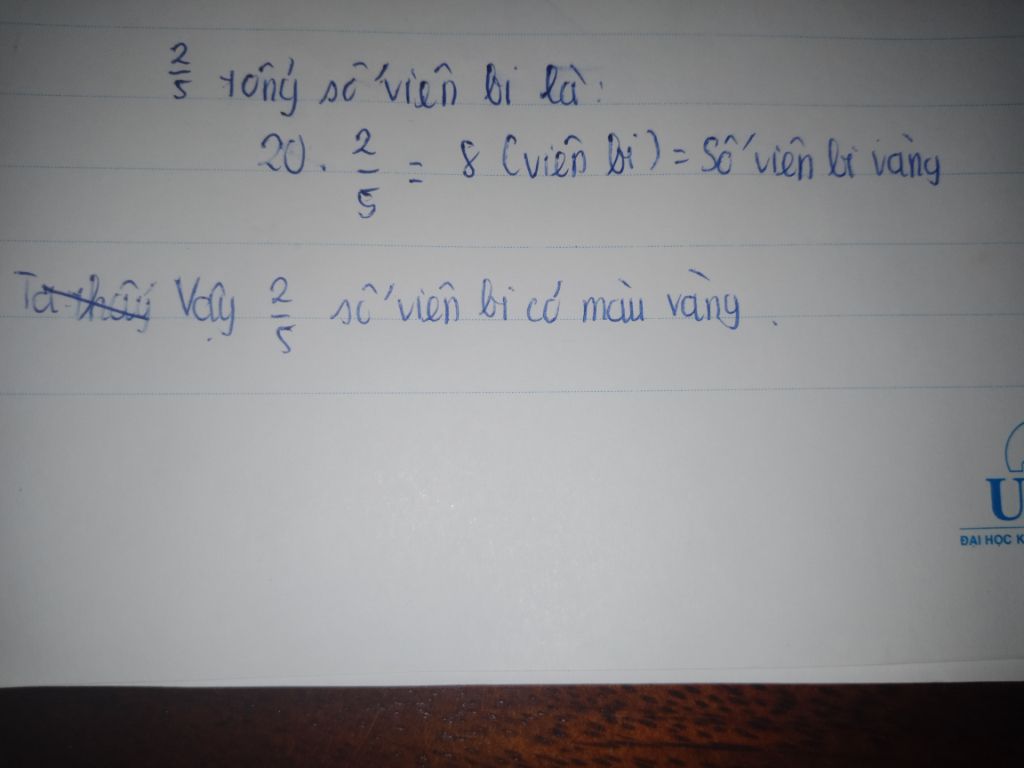 2/5 tổng số viên bi là:
20 . 2/5 = 8 (viên bi) = Số viên bi vàng
Ta thấy Vậy 2/5 số viên bi có màu vàng.
U
ĐẠI HỌC K